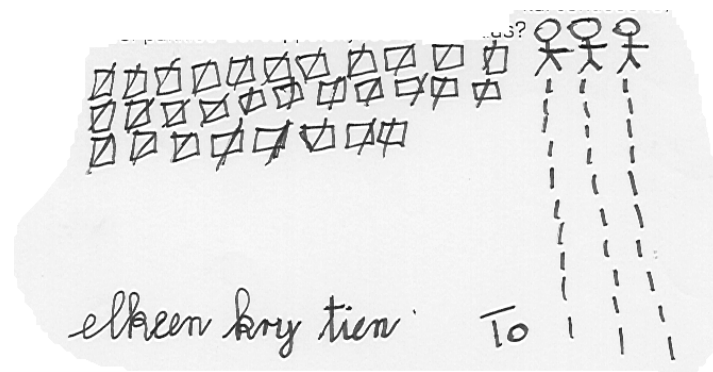 us?
elkeen kry tien
10